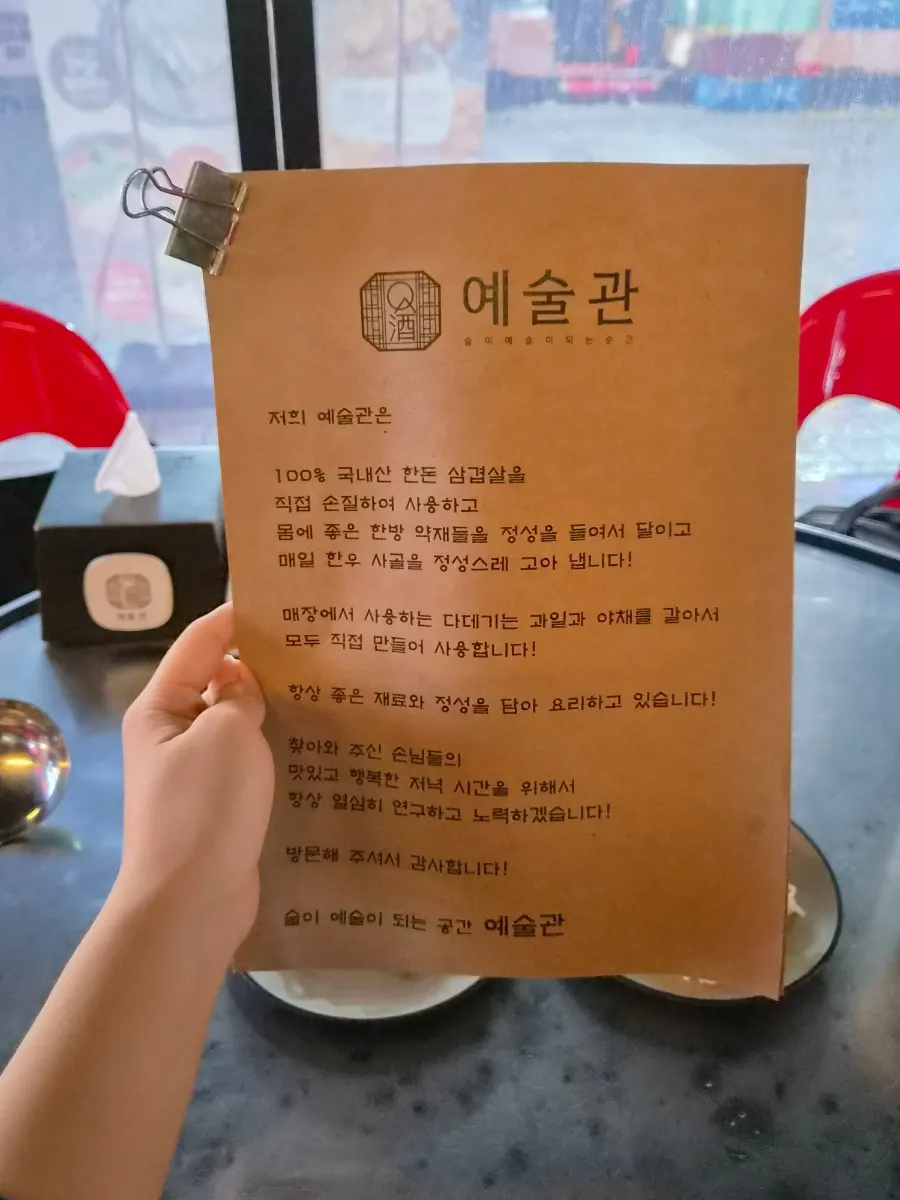 酒
예술관
술이예술이되는공간
저희 예술관은
100% 국내산 한돈 삼겹살을
직접 손질하여 사용하고
몸에 좋은 한방 약재들을 정성을 들여서 달이고
매일 한우 사골을 정성스레 고아 냅니다!
매장에서 사용하는 다데기는 과일과 야채를 갈아서
모두 직접 만들어 사용합니다!
항상 좋은 재료와 정성을 담아 요리하고 있습니다!
찾아와 주신 손님들의
맛있고 행복한 저녁 시간을 위해서
항상 열심히 연구하고 노력하겠습니다!
방문해 주셔서 감사합니다!
술이 예술이 되는 공간 예술관
예술관